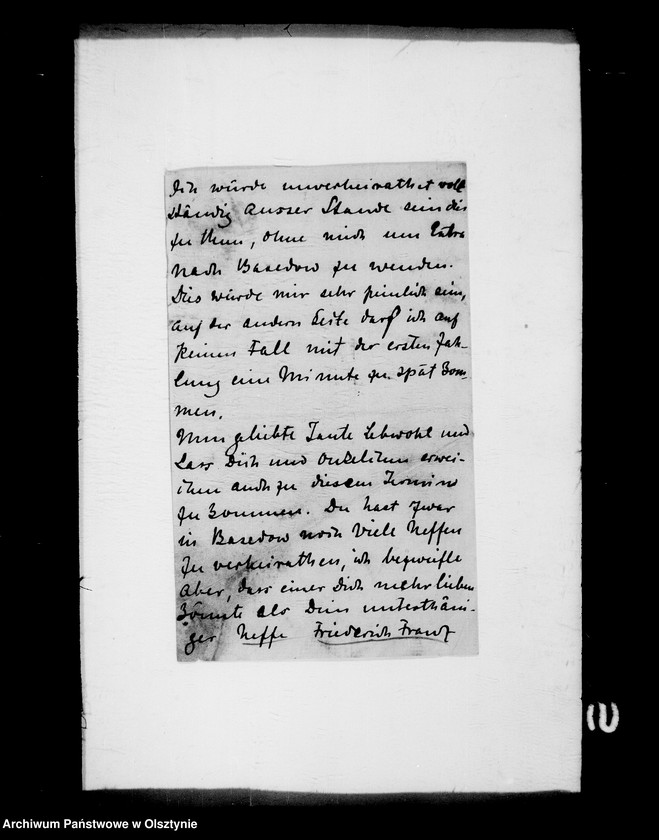 Ich würde unverheirathet voll
ständig ausser Stande sein dies
zu thun, ohne mich um Extra
nach Basedow zu wenden.
Dies würde mir sehr peinlich sein,
auf der andern Seite darf ich auf
keinen Fall mit der ersten Zah-
lung eine Minute zu spät kom-
men.
Nun geliebte Tante Lebwohl und
lass Dich und Onkelchen erwei-
chen auch zu diesem Termine
zu kommen. Du hast zwar
in Basedow noch viele Neffen
zu verheirathen, ich bezweifle
aber, dass einer Dich mehr lieben
könnte als Dein unterthäni-
ger Neffe Friederich Franz
10
Archiwum Państwowe w Olsztynie